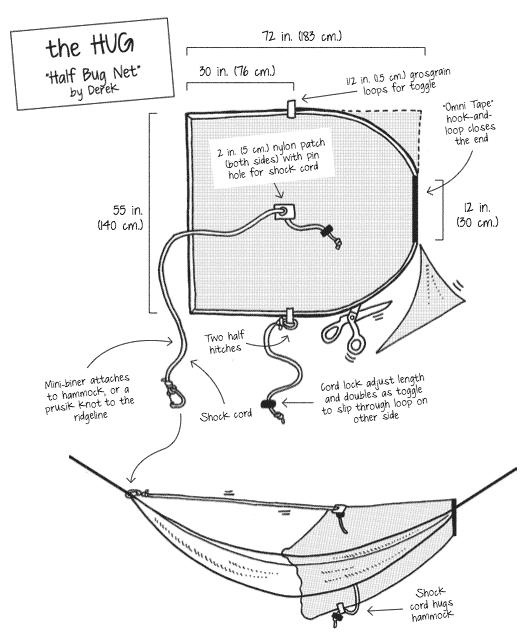 the HUG
"Half Bug Net"
by Derek
72 in. (183 cm.)
30 in. (76 cm.)
1/2 in. (1.5 cm.) grosgrain
loops for toggle
"Omni Tape"
hook-and-
loop closes
the end
2 in. (5 cm.) nylon patch
(both sides) with pin
hole for shock cord
55 in.
(140 cm.)
12 in.
(30 cm.)
Two half
hitches
Mini-biner attaches
to hammock, or a
prusik knot to the
ridgeline
Shock cord
Cord lock adjust length
and doubles as toggle
to slip through loop on
other side
Shock
cord hugs
hammock